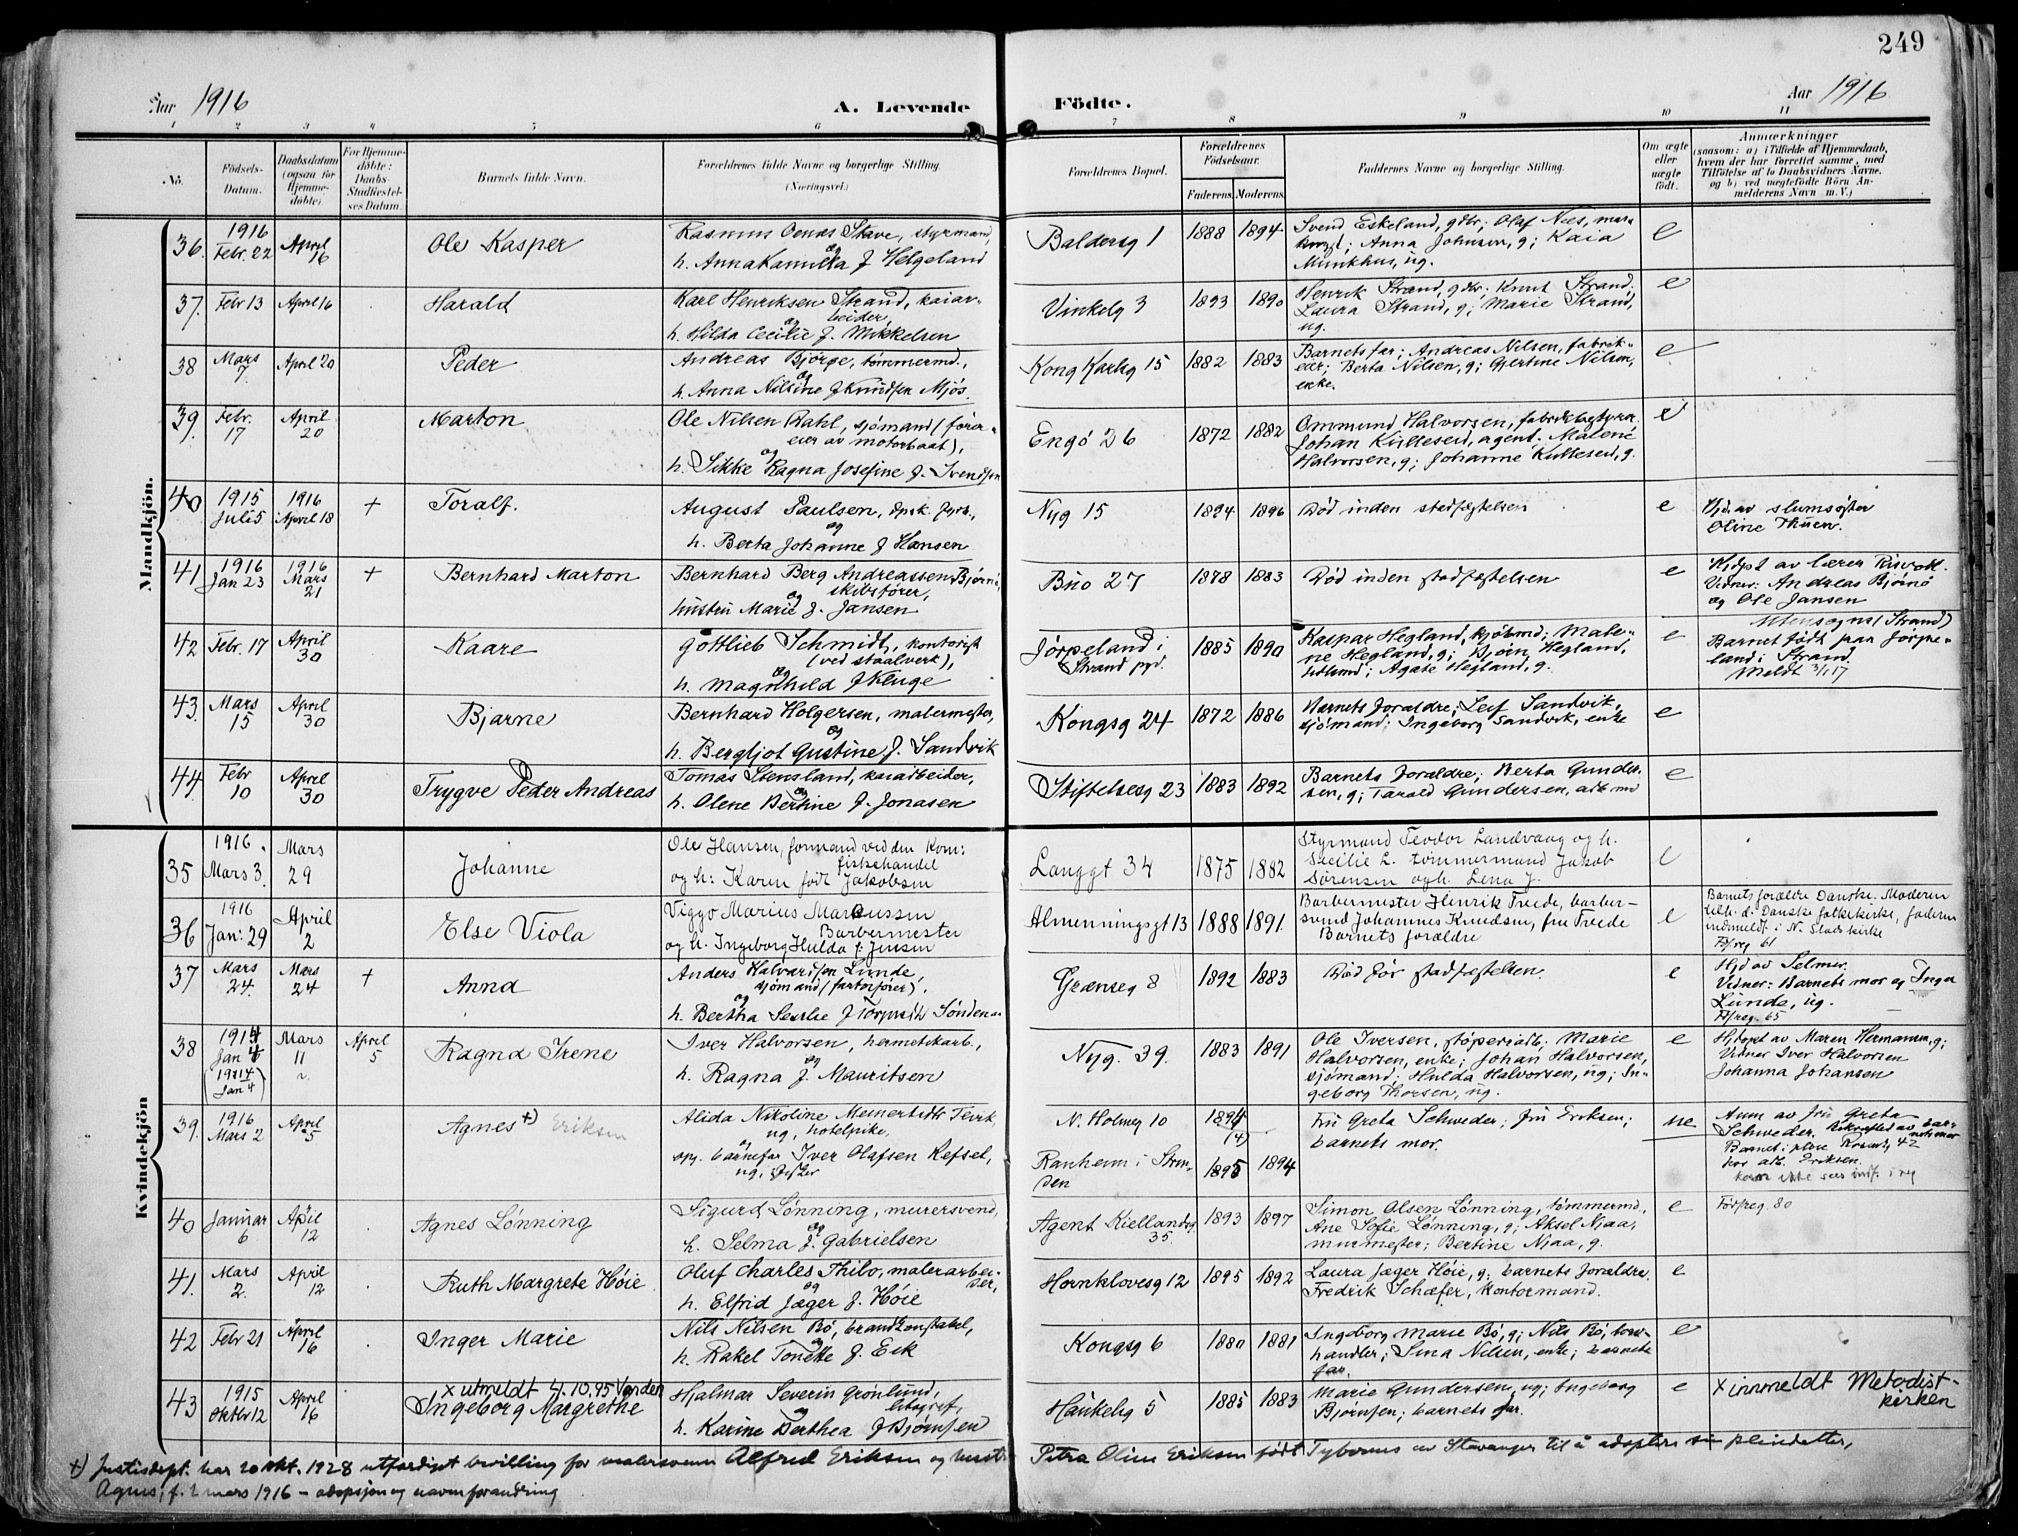 249
Aar 1916
A. Levende Födte.
Aar 1916
1 2 3 4 5 6 7 8 9 10 11
No.
Födsels-Datum.
Daabsdatum (ogsaa for Hjemmedöbte).
For Hjemmedöbte: Daabs-Stadfæstelses Datum.
Barnets fulde Navn.
Forældrenes fulde Navne og borgerlige Stilling.
(Næringsvei.)
Forældrenes Bopæl.
Forældrenes Födselsaar.
Faderens. Moderens.
Faddernes Navne og borgerlige Stilling.
Om ægte eller uægte födt.
Anmærkninger
(saasom: a) i Tilfælde af Hjemmedaab, hvem der har forrettet samme, med Tilföielse af to Daabsvidners Navne, og b) ved uægtefödte Börn Anmelderens Navn m. V.)
Mandkjön.
36. 1916 Febr. 22 April 16 Ole Kasper
Rasmus Skave, styrmand,
og
h. Anna Kamilla f. Helgeland
Baldersg 1 1888 1894
Svend Eskeland, gdbr; Olaf Næs,
Anna Johnsen, g; Kaia
Munkhus, ug.
e
37. Febr 13 April 16 Harald
Karl Henriksen Strand, kaiarbeider,
og
h. Hilda Cecilie f. Mikkelsen
Vinkelg 3 1893 1890
Henrik Strand, gdbr. Knut Strand.
Laura Strand, g; Marie Strand,
ug.
e
38 Mars 7. April 20 Peder
Andreas Bjørge, tømmermd.,
og
h. Anna Nilsine f Knudsen Mjøs.
Kong Karlsg 15 1882 1883
Barnets far; Andreas Nilsen, fabrikeier; Berta Nilsen, g; Gjertine Nilsen,
enke.
e
39. Febr. 17 April 20 Marton
Ole Nilsen Dahl, sjømand (fører
eier av motorbaat),
og
h. Sikke Ragna Josefine f. Svendsen
Engø 26 1872 1882
Ommund Halvorsen, fabrikbestyrer
Johan Kulleseid, agent. Malene
Halvorsen, g; Johanne Kulleseid, g.
e
40 1915 Juli 5 1916 April 18 + Toralf.
August Paulsen, dpsk. fyrb.,
og
h. Berta Johanne f Hansen
Nyg 15 1894 1896
Død inden stadfæstelsen
e
Hjd. av slumsøster
Oline Thuen.
41 1916 Jan 23 1916 Mars 21 + Bernhard Marton
Bernhard Berg Andreassen Bjørnø,
skibsfører,
og
hustru Marie f. Jansen
Buø 27 1878 1883
Død inden stadfæstelsen
e
Hjdpt av lærer Risvoll.
Vidner: Andreas Bjørnø
og Ole Jansen
42 Febr. 17 April 30 Kaare
Gottlieb Schmidt, kontorist
(ved staalverk),
og
h. Magnhild f Kluge
Jørpeland i
Strand pgd. 1885 1890
Kaspar Hegland, kjøbmd; Malene Hegland, g; Bjørn Hegland,
Agate Hegland, g.
e
Utensogns (Strand)
Barnet født paa Jørpeland i Strand.
Meldt 3/1 17
43. Mars 15 April 30 Bjarne
Bernhard Holgersen, malermester,
og
h. Bergljot Gustine f. Sandvik
Kongsg 24 1872 1886
Barnets forældre; Leif Sandvik,
sjømand; Ingeborg Sandvik, enke
e
44. Febr 10 April 30 Trygve Peder Andreas
Tomas Stensland, kaiarbeider,
og
h. Olene Bertine f. Jonasen
Stiftelsesg 23 1883 1892
Barnets forældre; Berta Gundersen, g; Tarald Gundersen, arb md
e
Kvindekjön
35 1916. Mars 3. Mars 29 Johanne
Ole Hansen, formand ved den Kom:
fiskehandel
og h: Karen født Jakobsen
Langgt 34 1875 1882
Styrmand Teodor Landvaag og h.
Sæcilie L. tømmermand Jakob
Sørensen og h. Lena J.
e
36 1916 Jan: 29 April 2 Else Viola
Viggo Marius Markussen
Barbermester
og h. Ingeborg Hulda f. Jensen
Almenningsgt 13 1888 1891.
Barbermester Henrik Trede, barbersvend Johannes Knudsen, fru Trede
Barnets forældre
e
Barnets forældre Danske. Moderen
tilh. d. Danske folkekirke, faderen
indmeldt i N. Statskirke
Føfreg 61
37 Mars 24. Mars 24 + Anna
Anders Halvardsen Lunde,
sjømand (fartøifører),
og
h. Bertha f Torpevik Søndenaa
Grænseg 8 1892 1883
Død før stadfæstelsen.
e
Hjd av Selmer.
Vidner: Barnets mor og Inga
Lunde, ug.
Føfreg. 65
38 1914 Jan 4 (1914 Jan 4) Mars 11 April 5 Ragna Irene
Iver Halvorsen, hermetikarb.,
og
h. Ragna f. Mauritsen
Nyg. 39. 1883 1891
Ole Iversen, støperiarb; Marie
Halvorsen, enke; Johan Halvorsen,
sjømand; Hulda Halvorsen, ug; Ingeborg Thorsen, ug.
e
Hjdøpt av Maren Hermansen, g;
Vidner Iver Halvorsen
Johanna Johansen
39. 1916 Mars 2 April 5 Agnes +) Eriksen
Alida Nikoline Meinertsdtr
ug, hotelpike,
og
opg. barnefar Iver Olafsen Refsel,
ug,
N. Holmeg 10 1894
Ranheim i Strinden 1895 1894
Fru Greta Schweder; fru Eriksen;
barnets mor.
ue
Anm av fru Greta
Schweder. Bekræftet av barnets mor
Barnet i pleie 42
hos arb. Eriksen.
40 Januar 6 April 12 Agnes Lønning
Sigurd Lønning, murersvend,
og
h. Selma f. Gabrielsen
Agent Kiellandsg.
35. 1893 1897
Simon Olsen Lønning, tømmermd,
Ane Sofie Lønning, g; Aksel Njaa,
murmester; Bertine Njaa, g.
e
Føfreg 80
41. Mars 2. April 12 Ruth Margrete Høie
Oluf Charles Thilo, malerarbeider,
og
h. Elfrid Jæger f. Høie
Hornklovesg 12 1895 1892
Laura Jæger Høie, g; barnets forældre.
Fredrik Schæfer, kontormand.
e
42 Febr 21 April 16 Inger Marie
Nils Nilsen Bø, brandkonstabel,
og
h. Rakel Tonette f. Eik
Kongsg 6 1880 1881
Ingeborg Marie Bø, g; Nils Bø,
handler; Sina Nilsen, enke; barnets
far.
e
43 1915 Oktbr 12 April 16
x utmeldt 4.10.95 Verden
Ingeborg Margrethe
Hjalmar Severin Grønlund,
litograf,
og
h. Karine Dorthea f Bjørnsen
Haukelig 5 1885 1883
Marie Gundersen, ug; Ingeborg
Bjørnsen; barnets far.
e
x innmeldt Metodist-
kirken
+) Justisdept. har 20 okt. 1928 utferdiget bevilling for malersvenn Alfred Eriksen og hustru Petra Oline Eriksen født av Stavanger til å adoptere sin pleiedatter,
Agnes, f. 2 mars 1916 – adopsjon og navneforandring